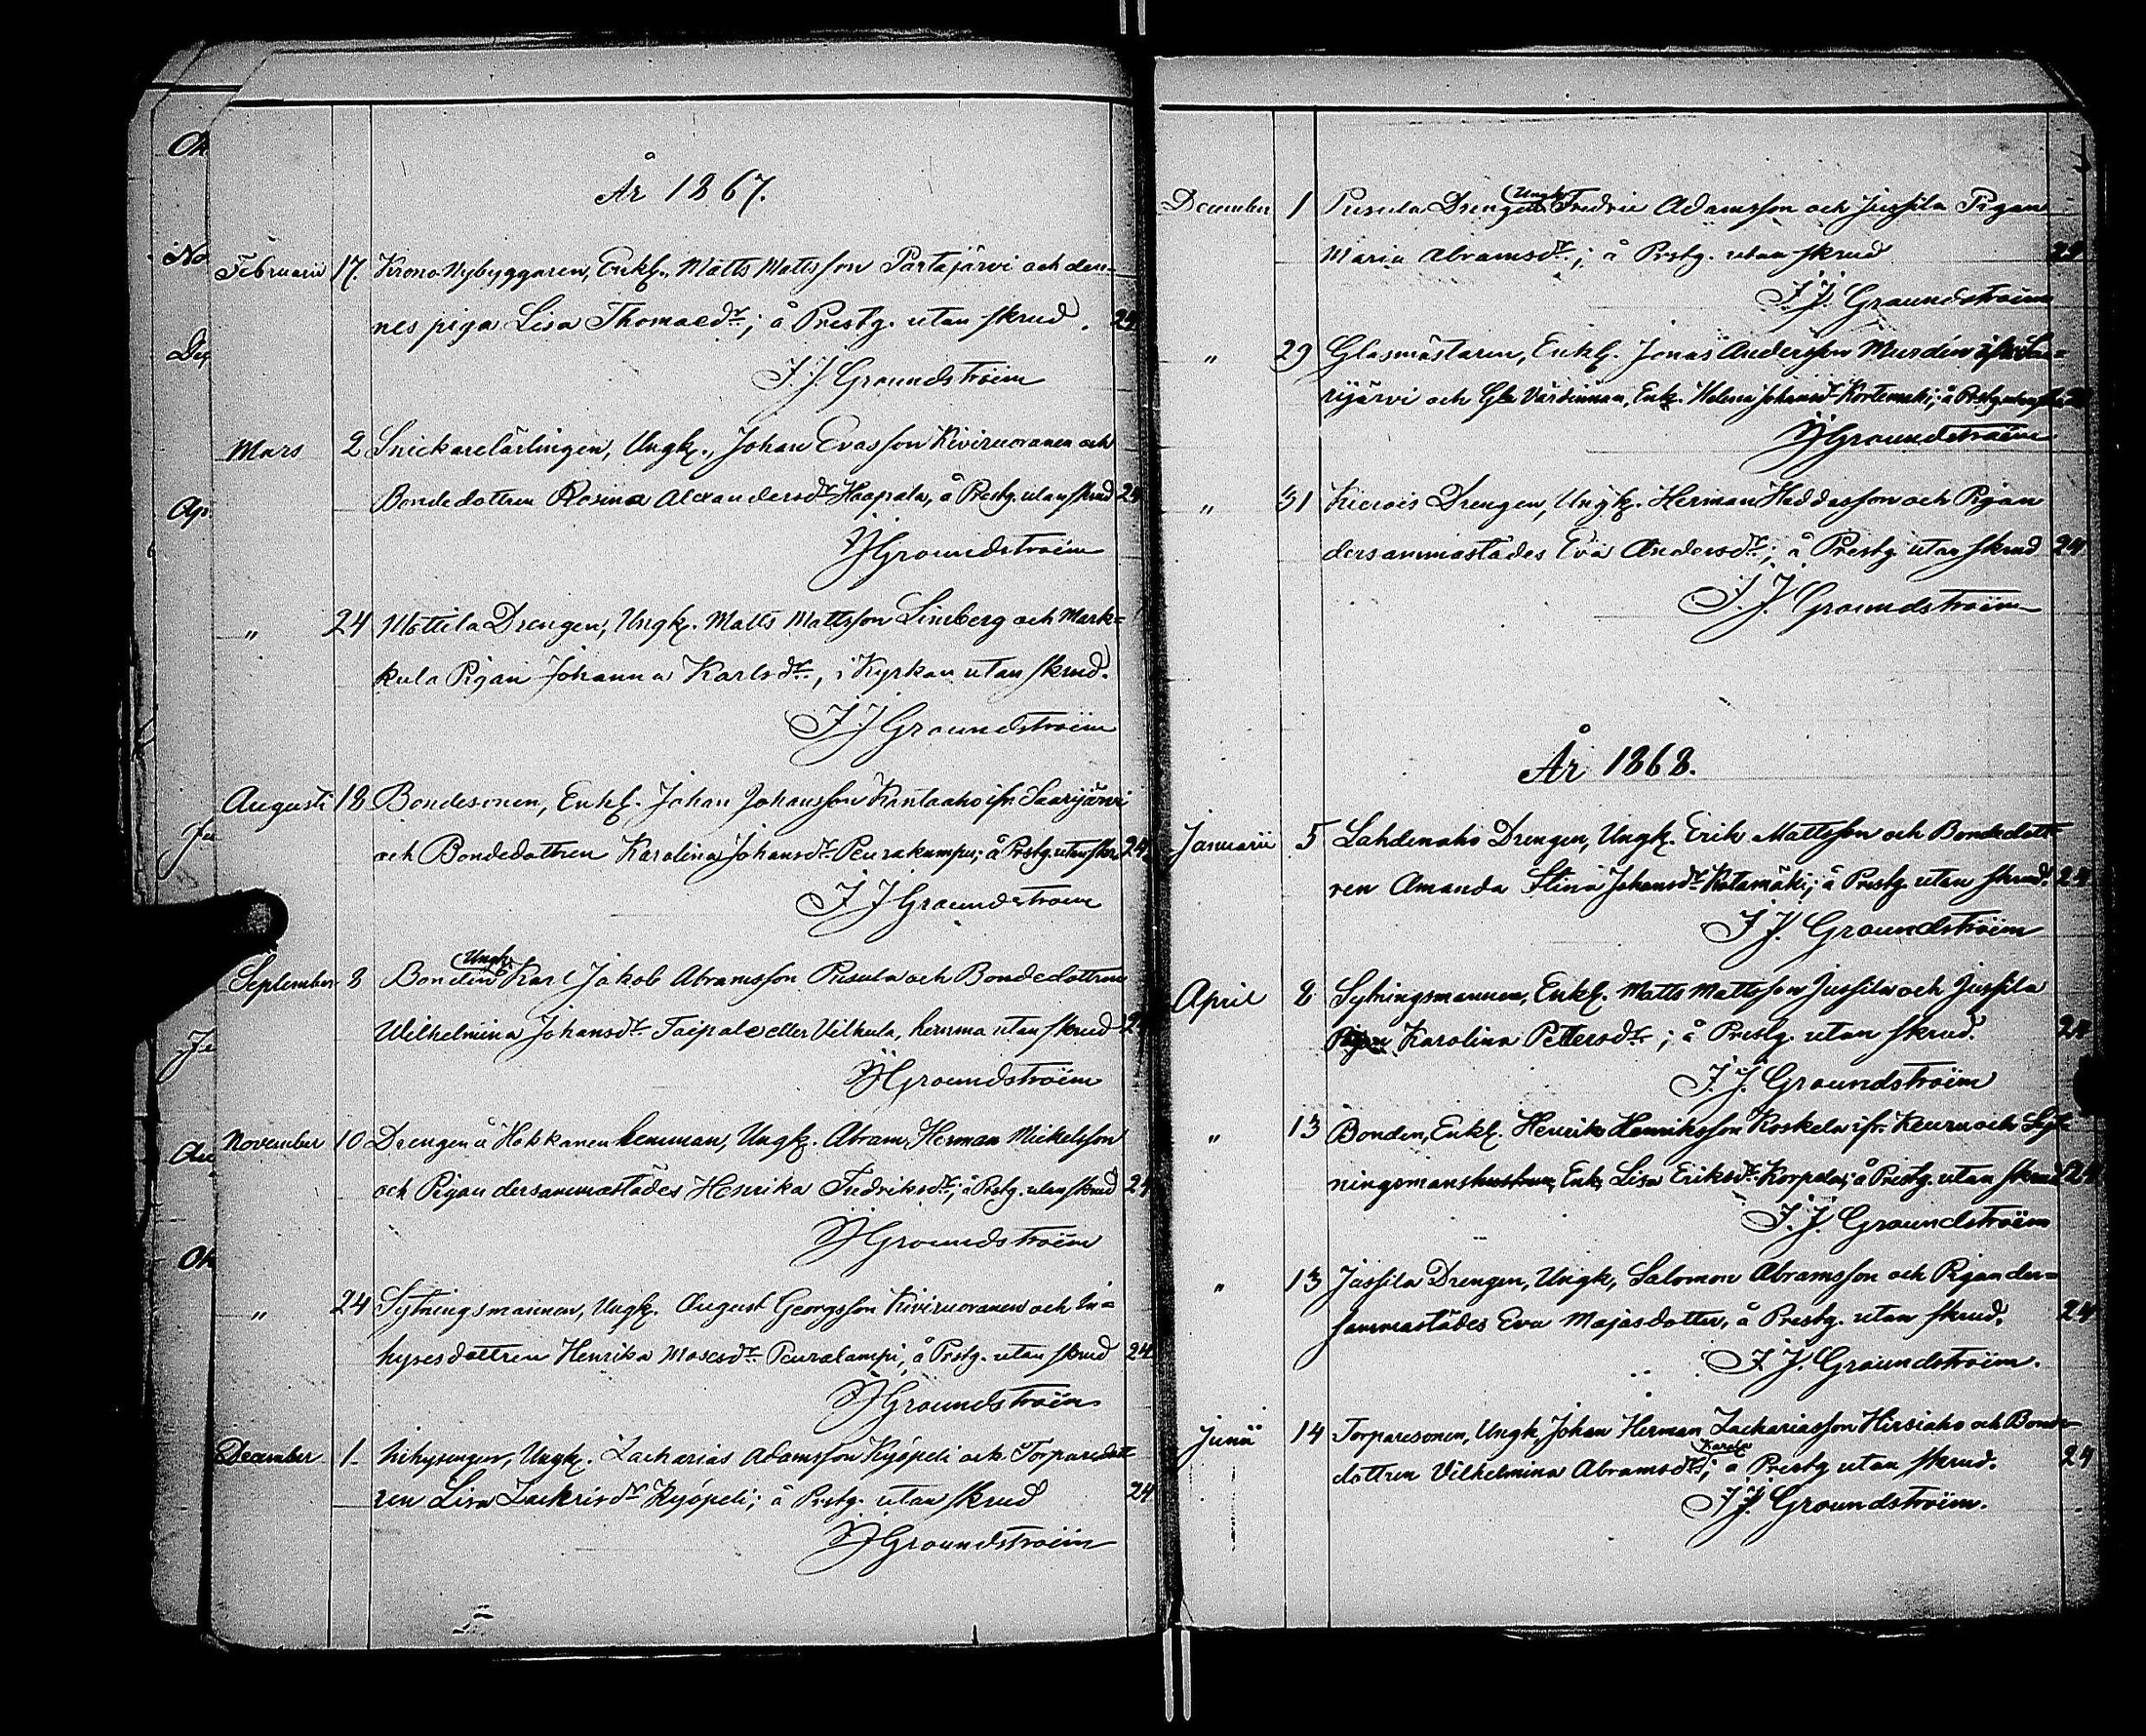 År 1867.
Februarii 17. Krono Nybyggaren, Enkl., Matts Mattsson Partajärvi och den-
nes piga Lisa Thomaedr.; å Prestg. utan skrud. 24
J. J. Groundstroëm
Mars 2 Snickarelärlingen, Ungk., Johan Evasson Kiviruoranen och
Bondedottren Rosina Alexandersdr. Haapala, å Prestg. utan skrud 24
JJGroundstroëm
" 24 Mottila Drengen, Ungk. Matts Mattsson Linsberg och Mark=
kula Pigan Johanna Karlsdr., i Kyrkan utan skrud.
J J Groundstroëm
Augusti 18 Bondesonen, Enkl. Johan Johansson Kantaaho ifr. Saarijärvi
och Bondedottren Karolina Johansdr. Peurakumpu; å Prstg. utan skr. 24
J J Groundstroëm
Ungk.
September 8 Bonden Karl Jakob Abramsson Pusula och Bondedottren
Wilhelmina Johansdr. Taipale eller Vilkula, hemma utan skrud 24
JJGroundstroëm
November 10 Drengen å Hokkanen hemman, Ungk. Abram Herman Mickelsson
och Pigan dersammastädes Henrika Fredriksdr.; å Prstg. utan skrud 24
JJGroundstroëm
" 24 Sytningsmannen, Ungk. August Georgsson Kiviruoranen och In=
hysesdottren Henrika Mosesdr. Peuralampi, å Prstg. utan skrud 24
JJGroundstroëm
December 1 Inhysingen, Ungk. Zacharias Adamsson Kyöpeli och Torparedott
ren Lisa Zackrisdr. Kyöpeli; å Prstg. utan skrud 24
JJGroundstroëm
Ungk.
December 1 Pusula Drengen Fredric Adamsson och Jussila Pigan
Maria Abramsdr.; å Prstg. utan skrud 24
J. J. Groundstroëm
" 29 Glasmästaren, Enkl. Jonas Andersson Murdin ifr. Saa=
rijärvi och Gla Värdinnan, Enk. Helena Johansdr. Kortemäki; å Prstg.
JJGroundstroëm
" 31 Drengen, Ungk. Herman Heddasson och Pigan
dersammastädes Eva Andersdr.; å Prestg utan skrud 24
J. J. Groundstroëm
År 1868.
Januarii 5 Lahdenaho Drengen, Ungk. Erik Mattsson och Bondedott-
ren Amanda Stina Johansdr. Katamäki; å Prestg. utan skrud. 24
J J. Groundstroëm
April 2 Sytningsmannen, Enkl. Matts Mattsson Jussila och Jussila
Pigan Karolina Pettersdr.; å Prestg. utan skrud. 24
J. J. Groundstroëm
" 13 Bonden, Enkl. Henrik Henriksson Koskela ifr. Keuru och Syt-
ningsmanshustrun, Enk. Lisa Eriksdr. Korpela; å Prestg. utan skrud 24
J. J. Groundstroëm
" 13 Jussila Drengen, Ungk, Salomon Abramsson och Pigan der=
sammastädes Eva Majasdotter, å Prestg. utan skrud. 24
J. J. Groundstroëm.
Junii 14 Torparesonen, Ungk, Johan Herman Zachariasson Hirsiaho och Bonde-
Karala
dottren Vilhelmina Abramsdr.; å Prestg utan skrud. 24
J J. Groundstroëm.